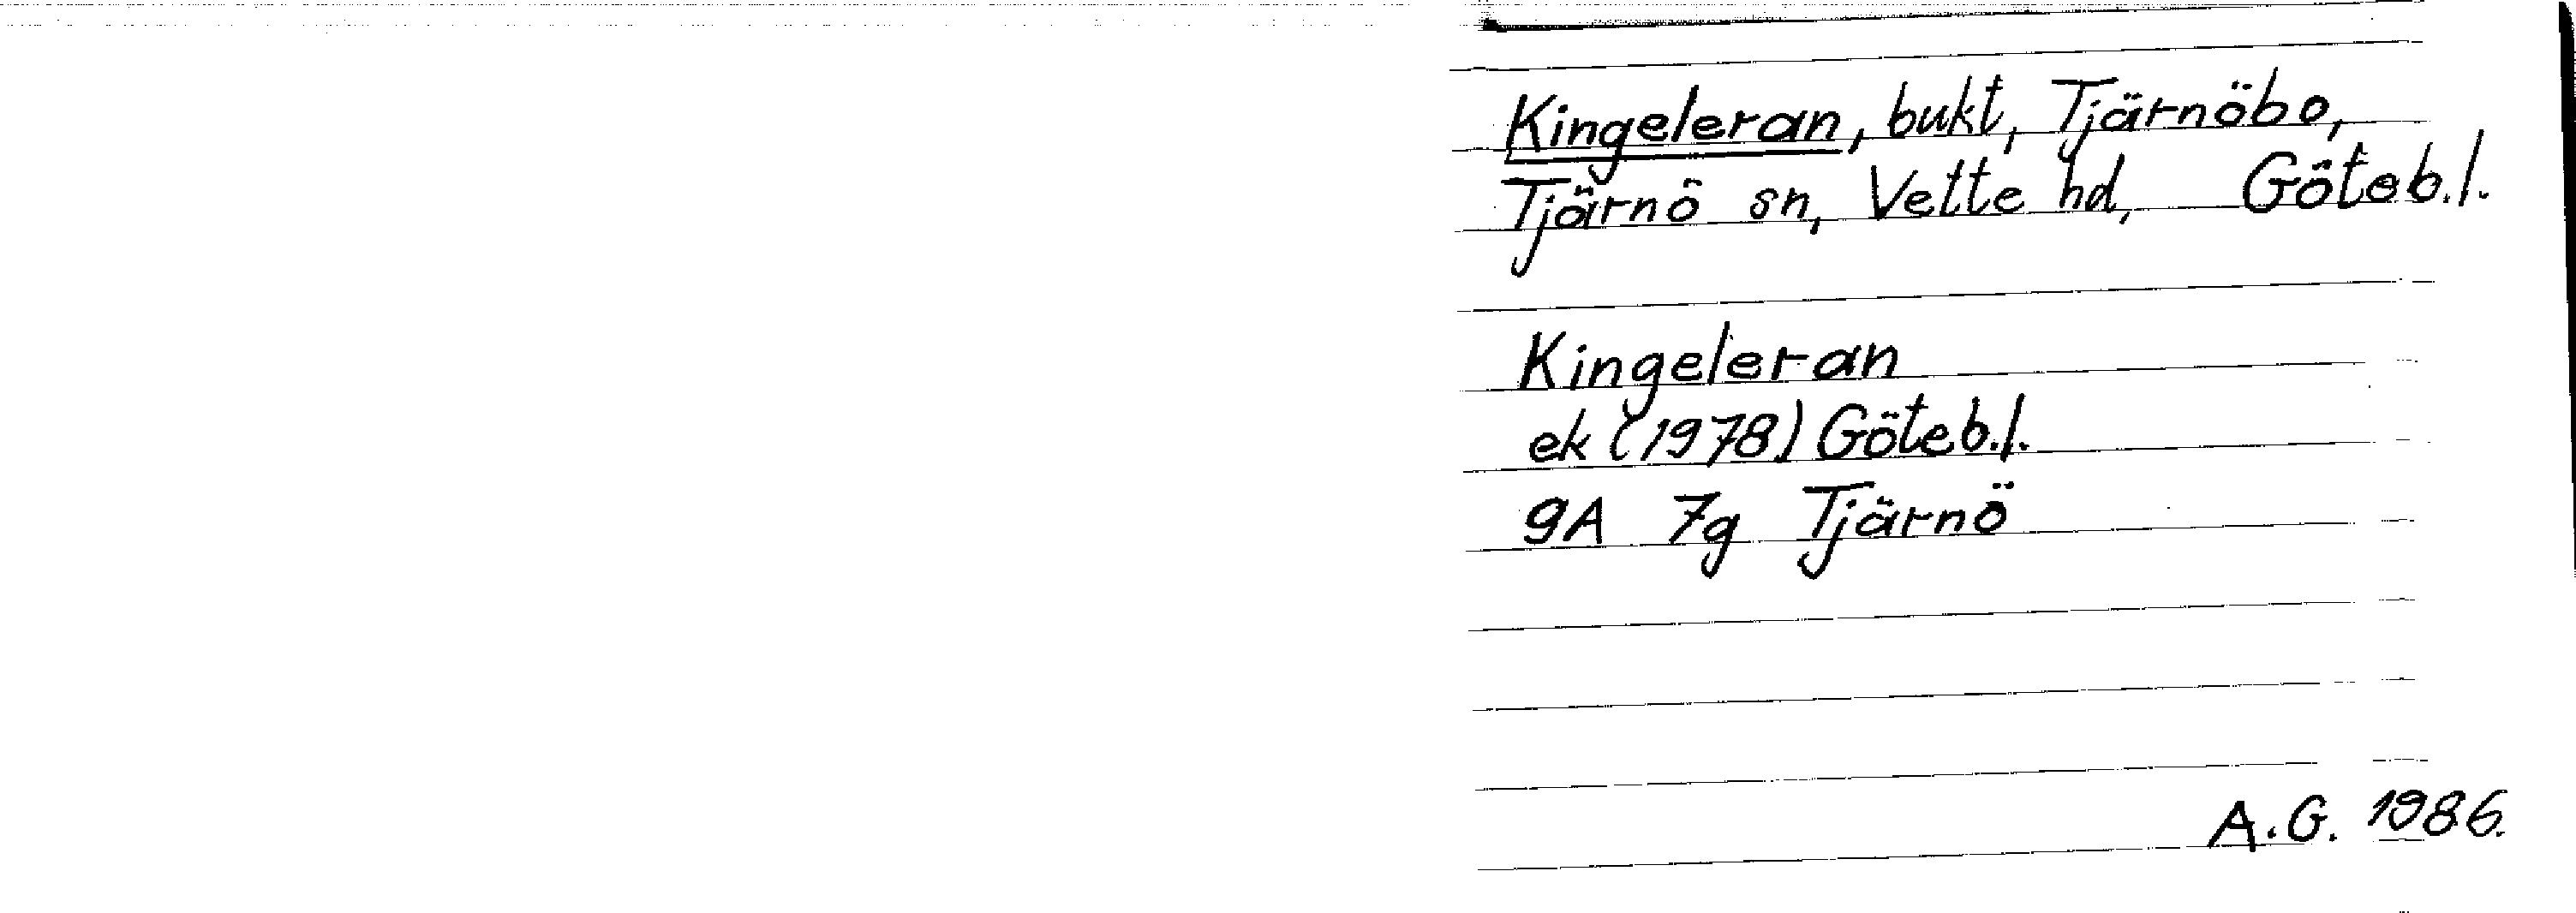 Kingeleran, bukt, Tjärnöbo,
Tjärnö sn, Vette hd, Göteb.l.
Kingeleran
ek (1978) Göteb.l.
9A 7g Tjärnö
A.G. 1986.